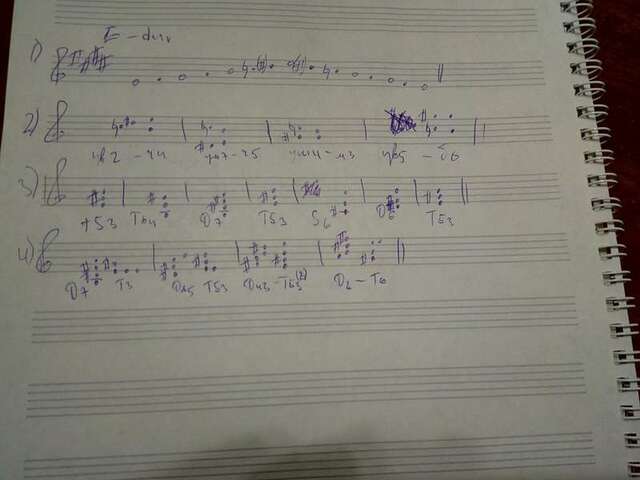 E-dur
1)
2)
ув2 - ч4 ум7-ч5 ум4-м3 ув5 - б6
3)
T53 T64 D7 T53 S6 D6 T53
4)
D7 T3 D65 T53 D43 - T53 D2 - T6